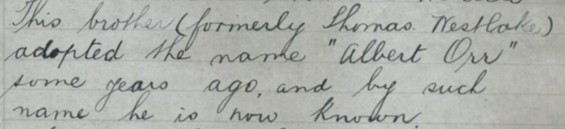 This brother (formerly Thomas Westlake)
adopted the name "Albert Orr"
some years ago, and by such
name he is now known.